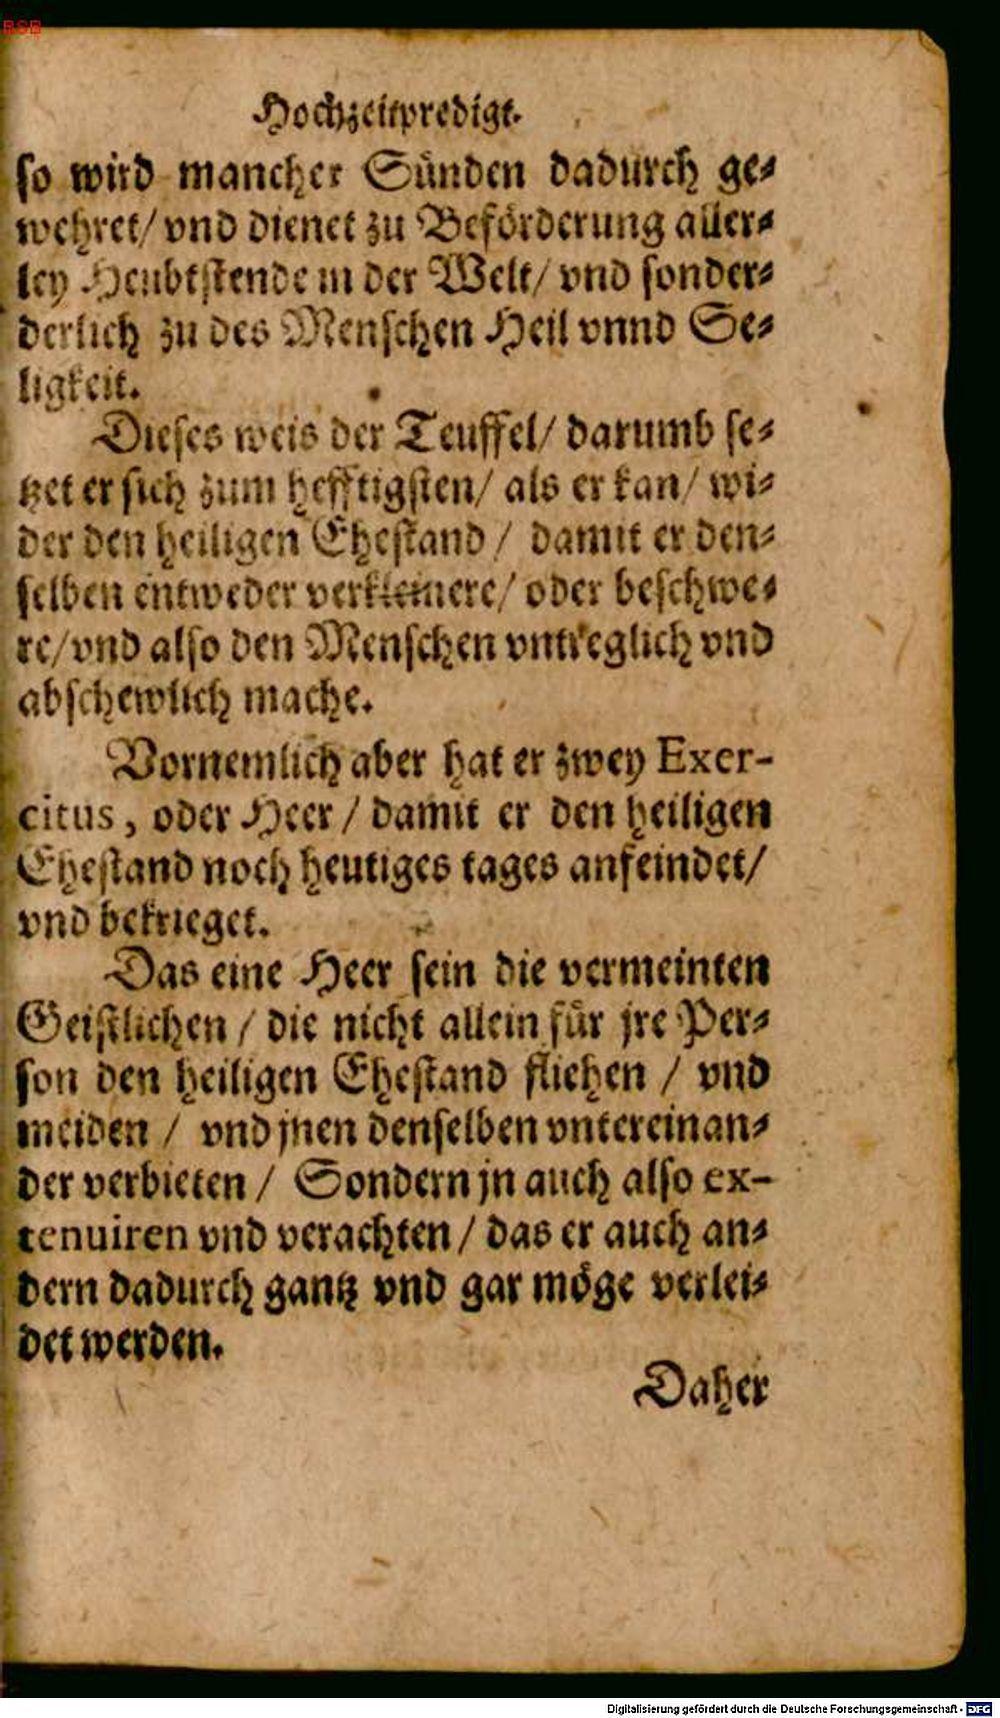 BSB
Hochzeitpredigt.
so wird mancher Sünden dadurch ge-
wehret/ vnd dienet zu Beförderung aller-
ley Heubtstende in der Welt/ vnd sonder-
derlich zu des Menschen Heil vnnd Se-
ligkeit.
Dieses weis der Teuffel/ darumb se-
tzet er sich zum hefftigsten/ als er kan/ wi-
der den heiligen Ehestand / damit er den-
selben entweder verkleinere/ oder beschwe-
re/ vnd also den Menschen vntreglich vnd
abschewlich mache.
Vornemlich aber hat er zwey Exer-
citus, oder Heer / damit er den heiligen
Ehestand noch heutiges tages anfeindet/
vnd bekrieget.
Das eine Heer sein die vermeinten
Geistlichen / die nicht allein für jre Per-
son den heiligen Ehestand fliehen / vnd
meiden / vnd jnen denselben vntereinan-
der verbieten / Sondern jn auch also ex-
tenuiren vnd verachten / das er auch an-
dern dadurch gantz vnd gar möge verlei-
det werden.
Daher
Digitalisierung gefördert durch die Deutsche Forschungsgemeinschaft - DFG